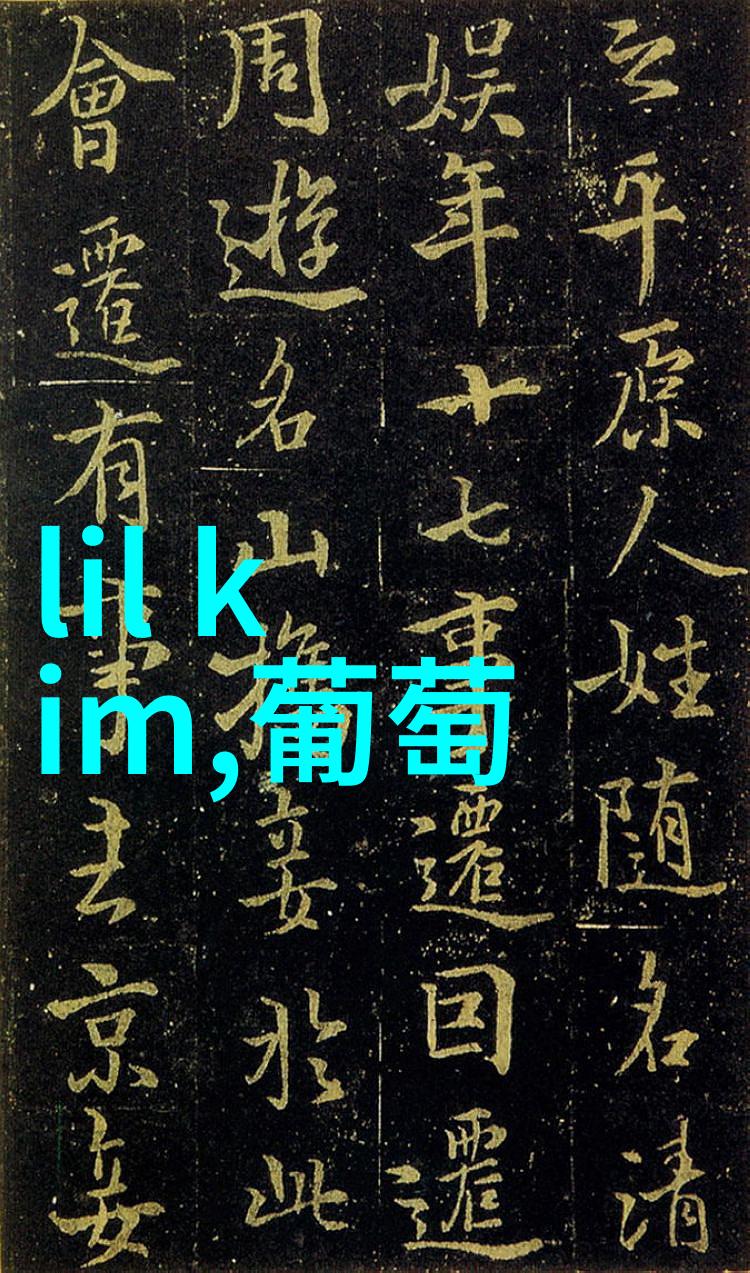 之平原人姓随名清
娱年十七遷遷
周遊名山携妾於此
會遷有事京妾
lil k
im,葡萄